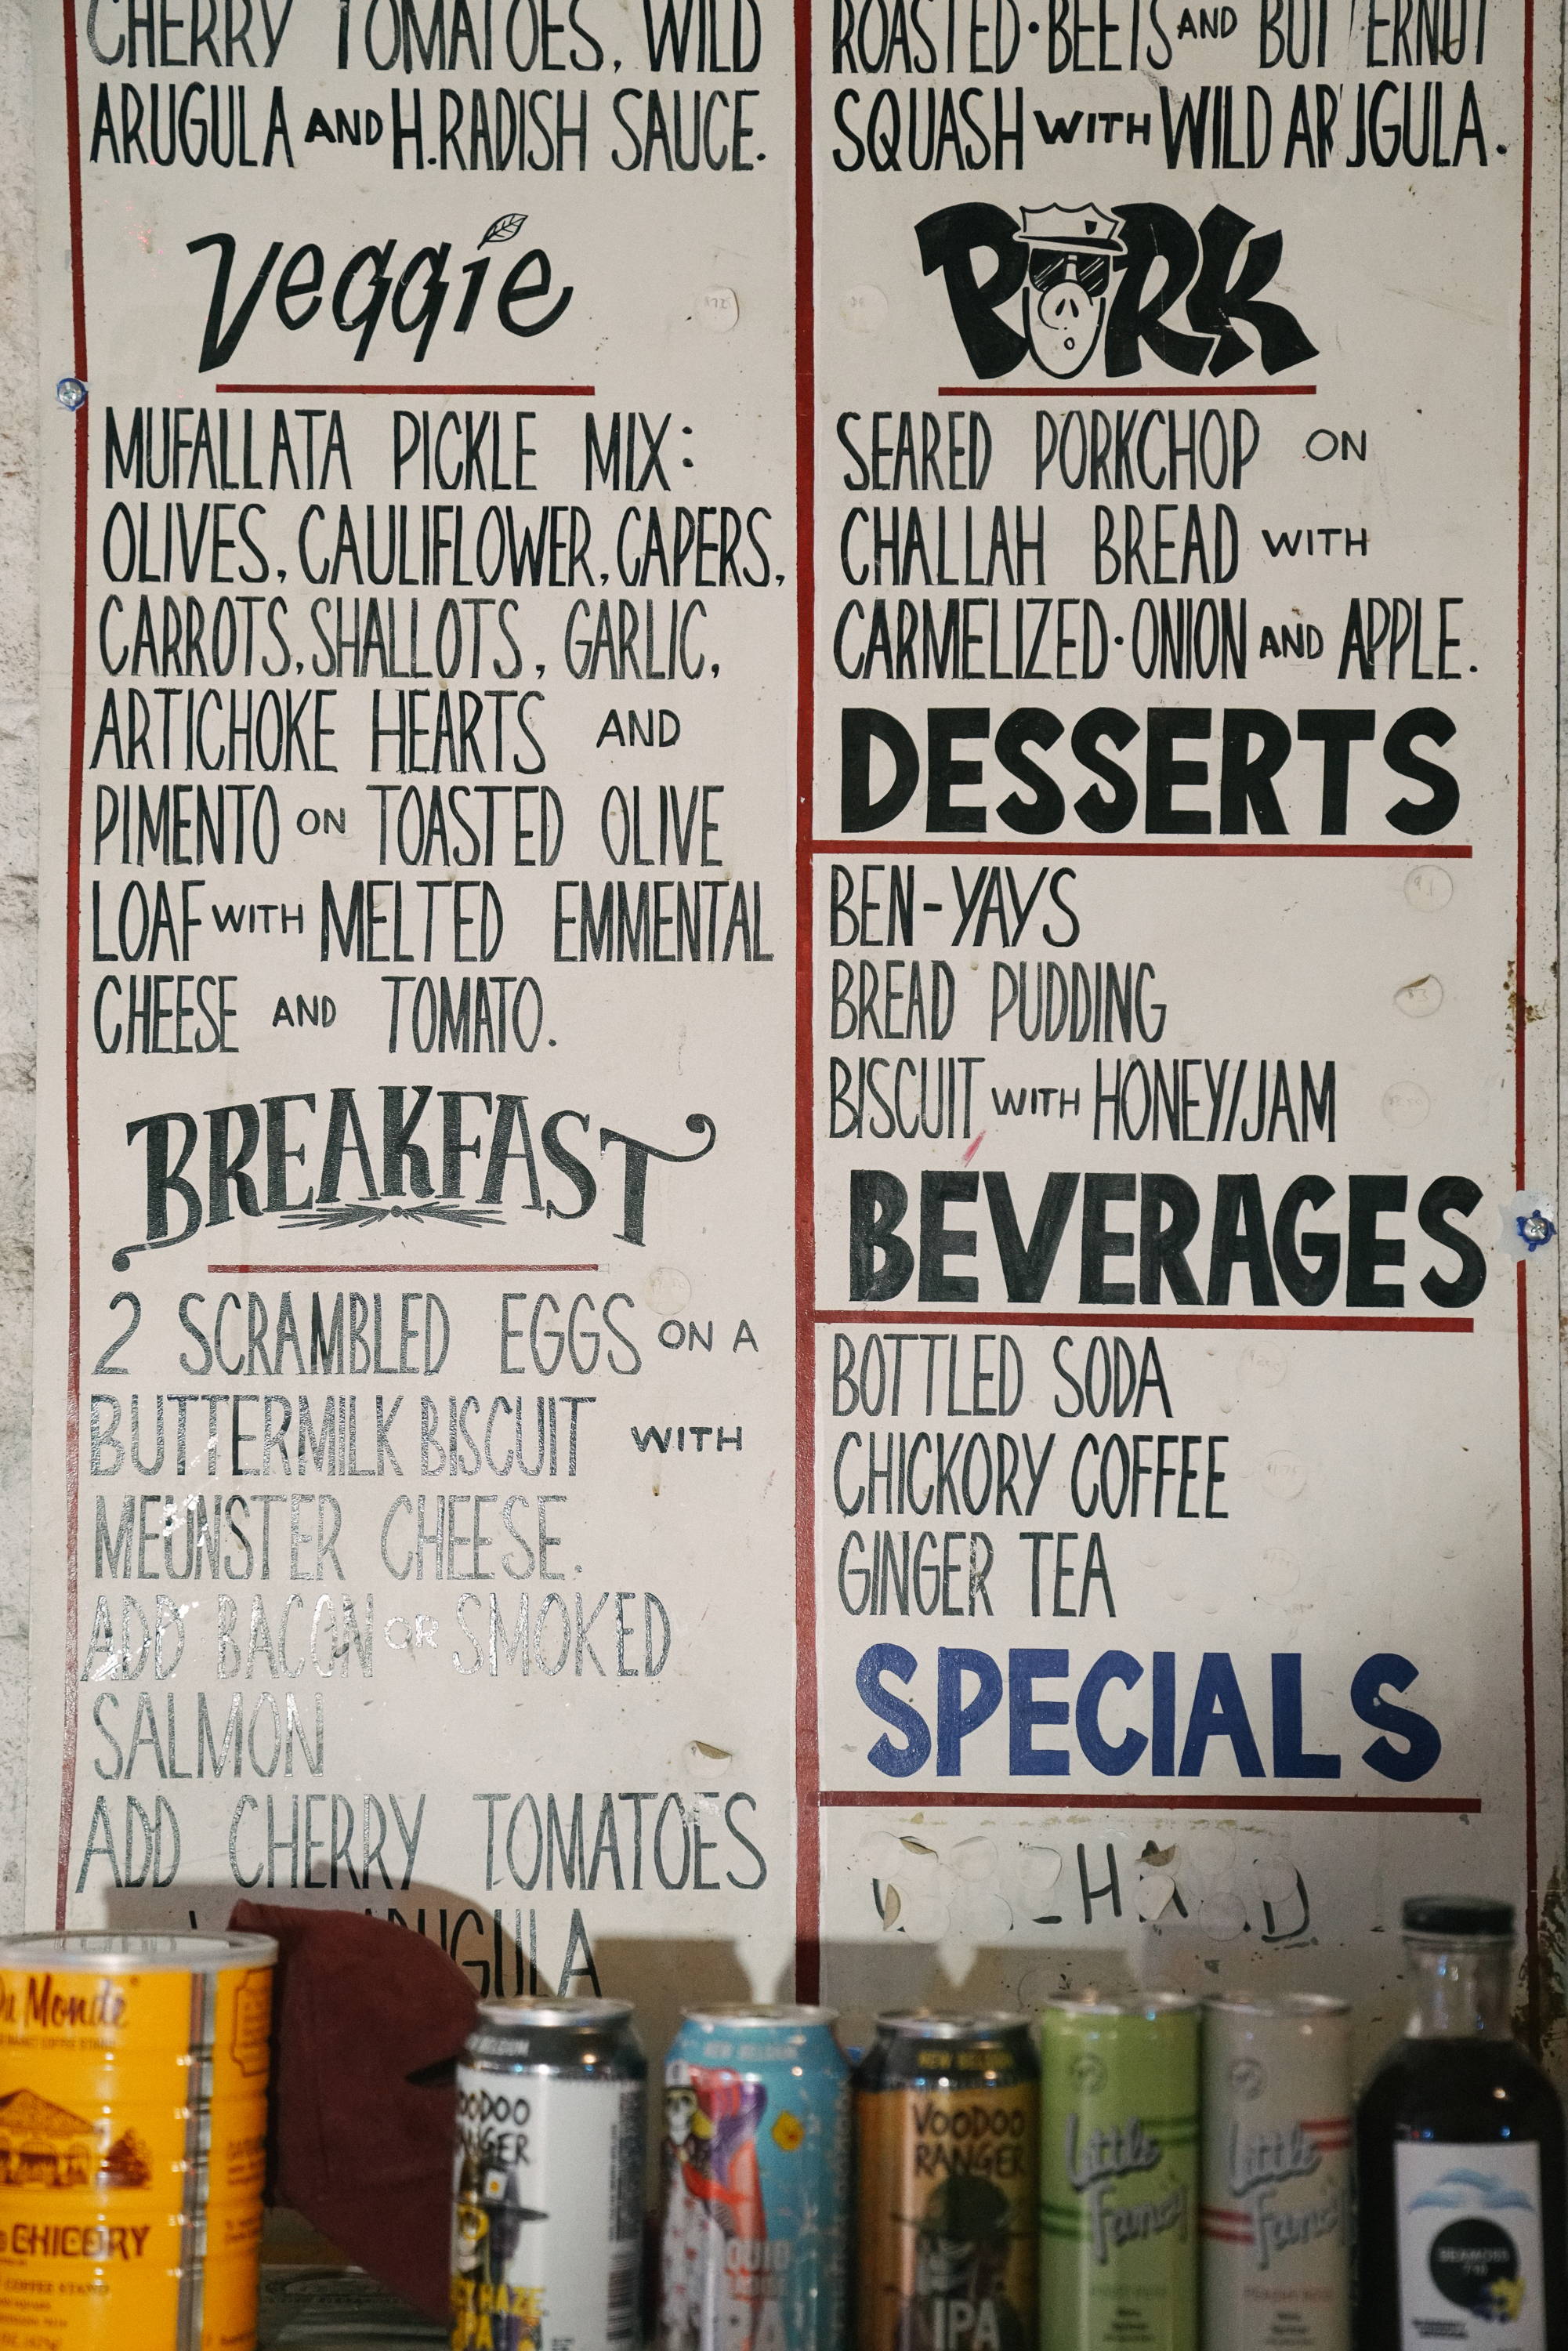 CHERRY TOMATOES, WILD
ARUGULA AND H.RADISH SAUCE.
Veggie
MUFALLATA PICKLE MIX:
OLIVES, CAULIFLOWER, CAPERS,
CARROTS, SHALLOTS, GARLIC,
ARTICHOKE HEARTS AND
PIMENTO ON TOASTED OLIVE
LOAF WITH MELTED EMMENTAL
CHEESE AND TOMATO.
BREAKFAST
2 SCRAMBLED EGGS ON A
BUTTERMILK BISCUIT WITH
MEUNSTER CHEESE.
ADD BACON OR SMOKED
SALMON
ADD CHERRY TOMATOES
ARUGULA
ROASTED·BEETS AND BUTTERNUT
SQUASH WITH WILD ARUGULA.
PORK
SEARED PORKCHOP ON
CHALLAH BREAD WITH
CARMELIZED·ONION AND APPLE.
DESSERTS
BEN-YAYS
BREAD PUDDING
BISCUIT WITH HONEY/JAM
BEVERAGES
BOTTLED SODA
CHICKORY COFFEE
GINGER TEA
SPECIALS
Du Monde
CHICORY
VOODOO
RANGER
HAZE
IPA
NEW BELGIUM
NEW BELGIUM
VOODOO
RANGER
IPA
Little
Fancy
Little
Fancy